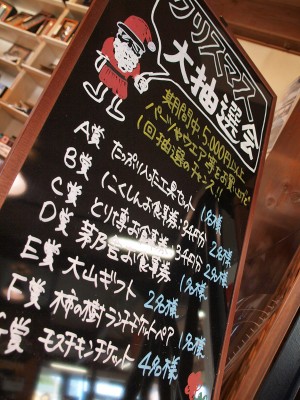 クリスマス
大抽選会
期間中 5,000円以上
パーツやウェア等をお買い上げで
1回抽選のチャンス!!
A賞 たっぷり入った工具セット 1名様
B賞 にくしんお食事券 3千円分 2名様
C賞 とり博お食事券 3千円分 2名様
D賞 茅乃豆お食事券 1名様
E賞 大山ギフト 2名様
F賞 柿の樹ランチチケットペア 1名様
G賞 モスチキンチケット 4名様